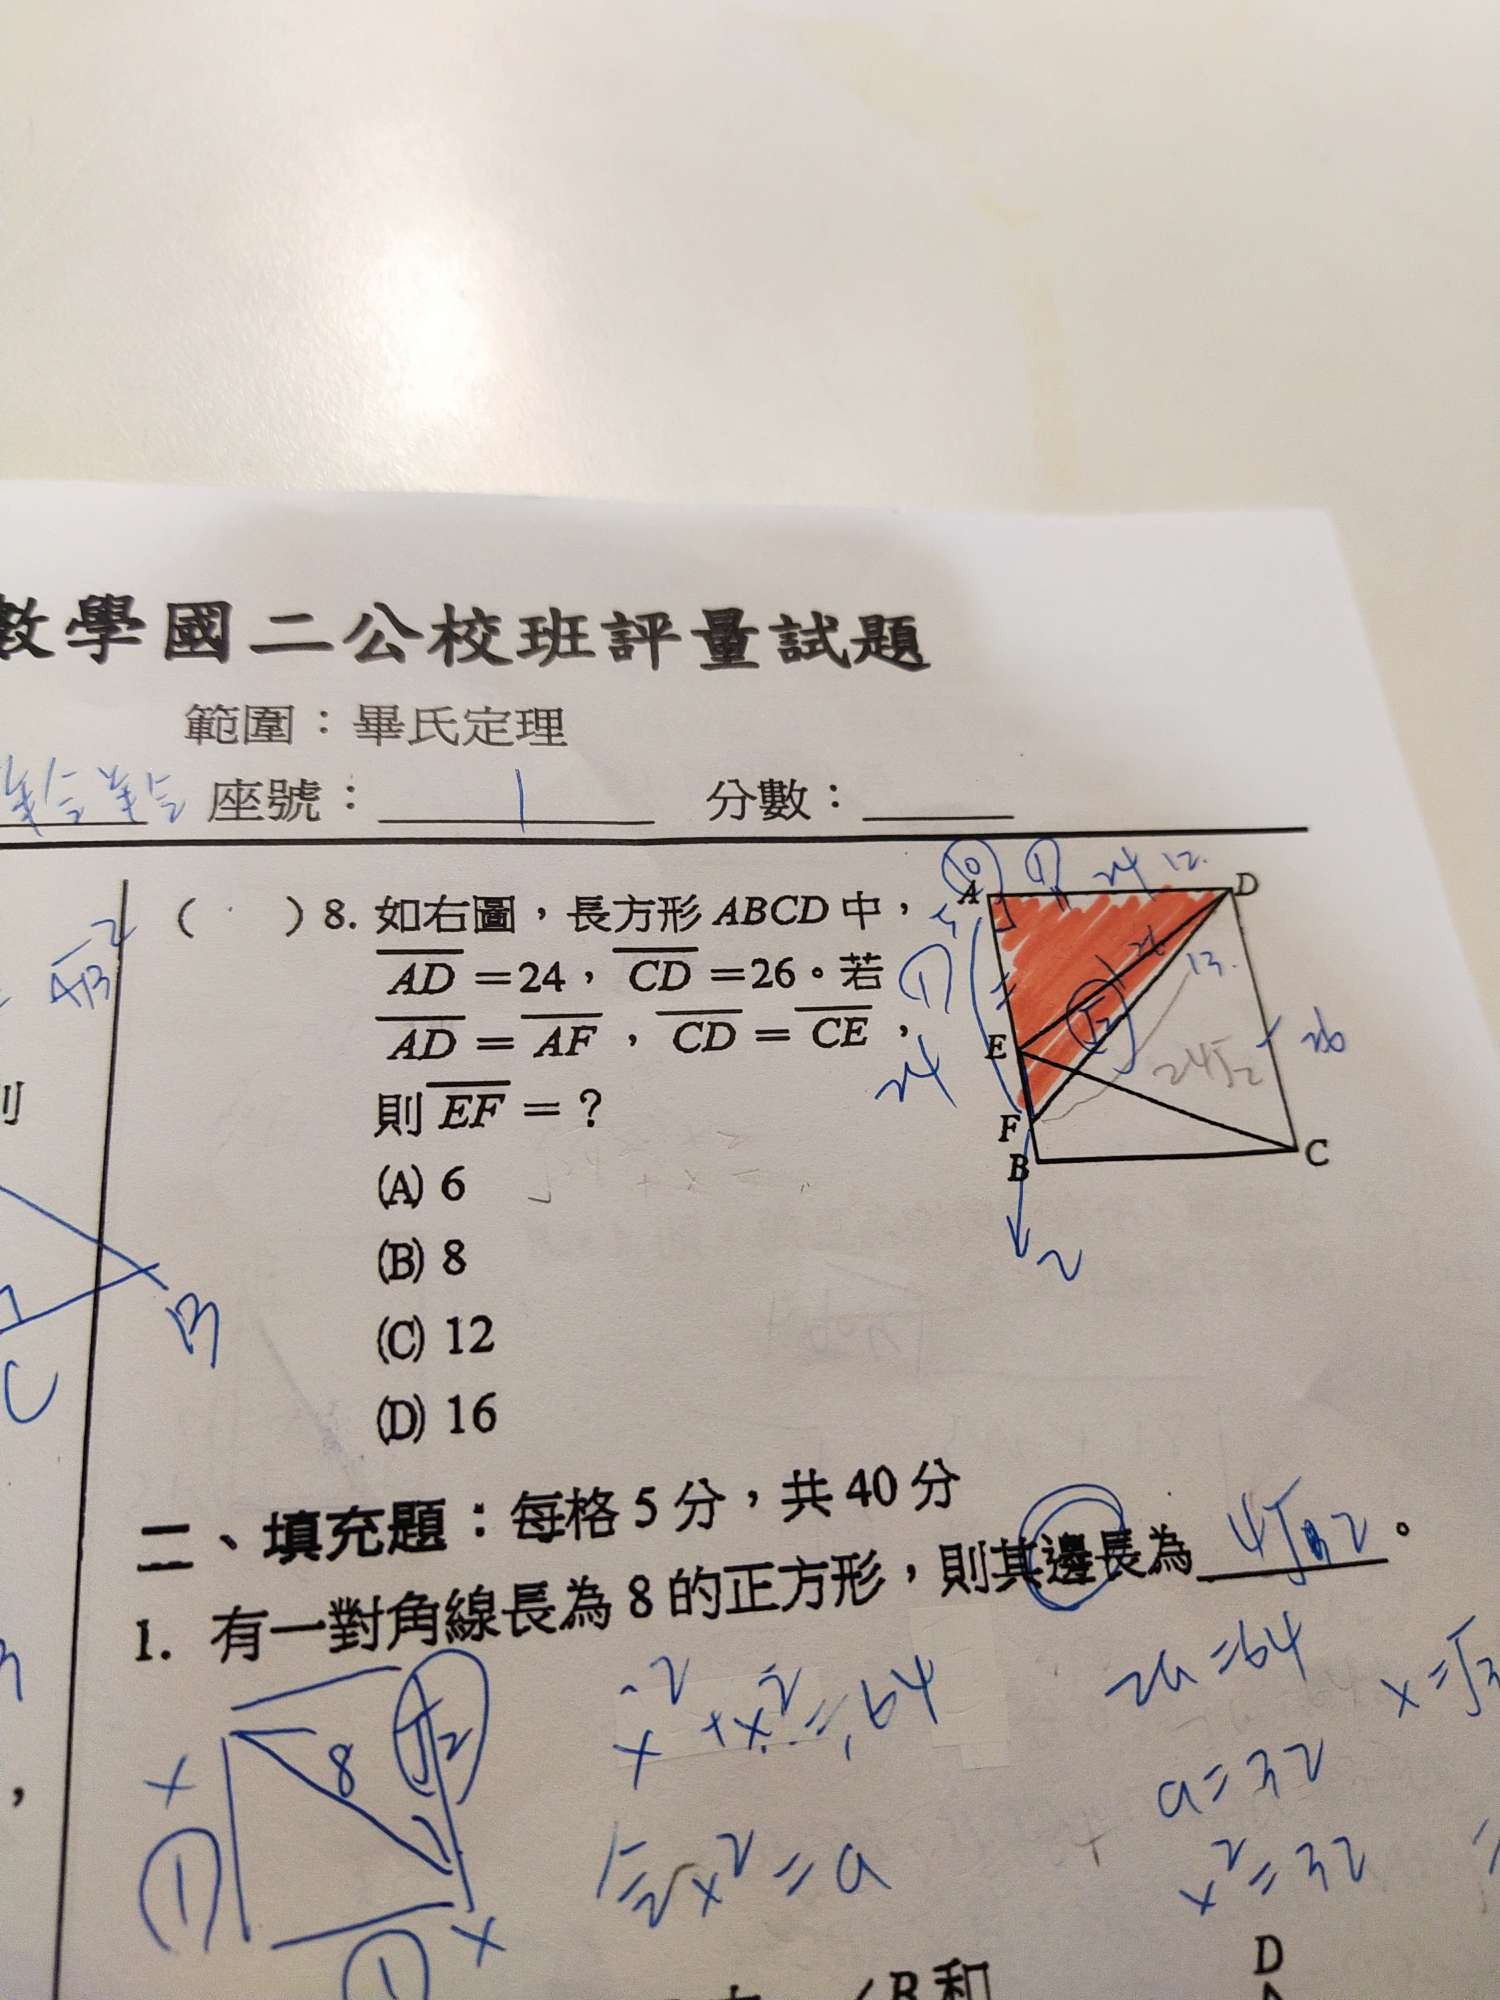 數學國二公校班評量試題
範圍：畢氏定理
座號： 1 分數：
( ) 8. 如右圖，長方形 ABCD 中，
AD =24， CD =26。若
AD = AF ， CD = CE ，
則 EF = ？
(A) 6
(B) 8
(C) 12
(D) 16
A
D
E
F
B
C
10
1
24 12.
1
24
26
13.
√2
24√2
26
2
B
C
二、填充題：每格 5 分，共 40 分
1. 有一對角線長為 8 的正方形，則其邊長為 。
x
8
√2
1
x
1
x²+x²=64
2a=64
a=32
x²=a
x²=32
D